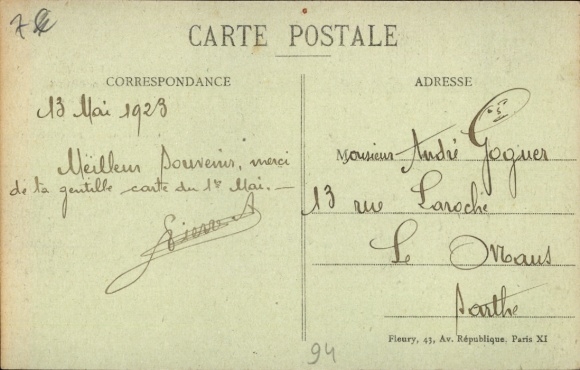 CARTE POSTALE
CORRESPONDANCE
13 Mai 1923
Meilleur Souvenir, merci
de ta gentille carte du 1er Mai. —
ADRESSE
Monsieur André
13 rue Laroche
Le Mans
Sarthe
Fleury, 43, Av. République, Paris XI
94